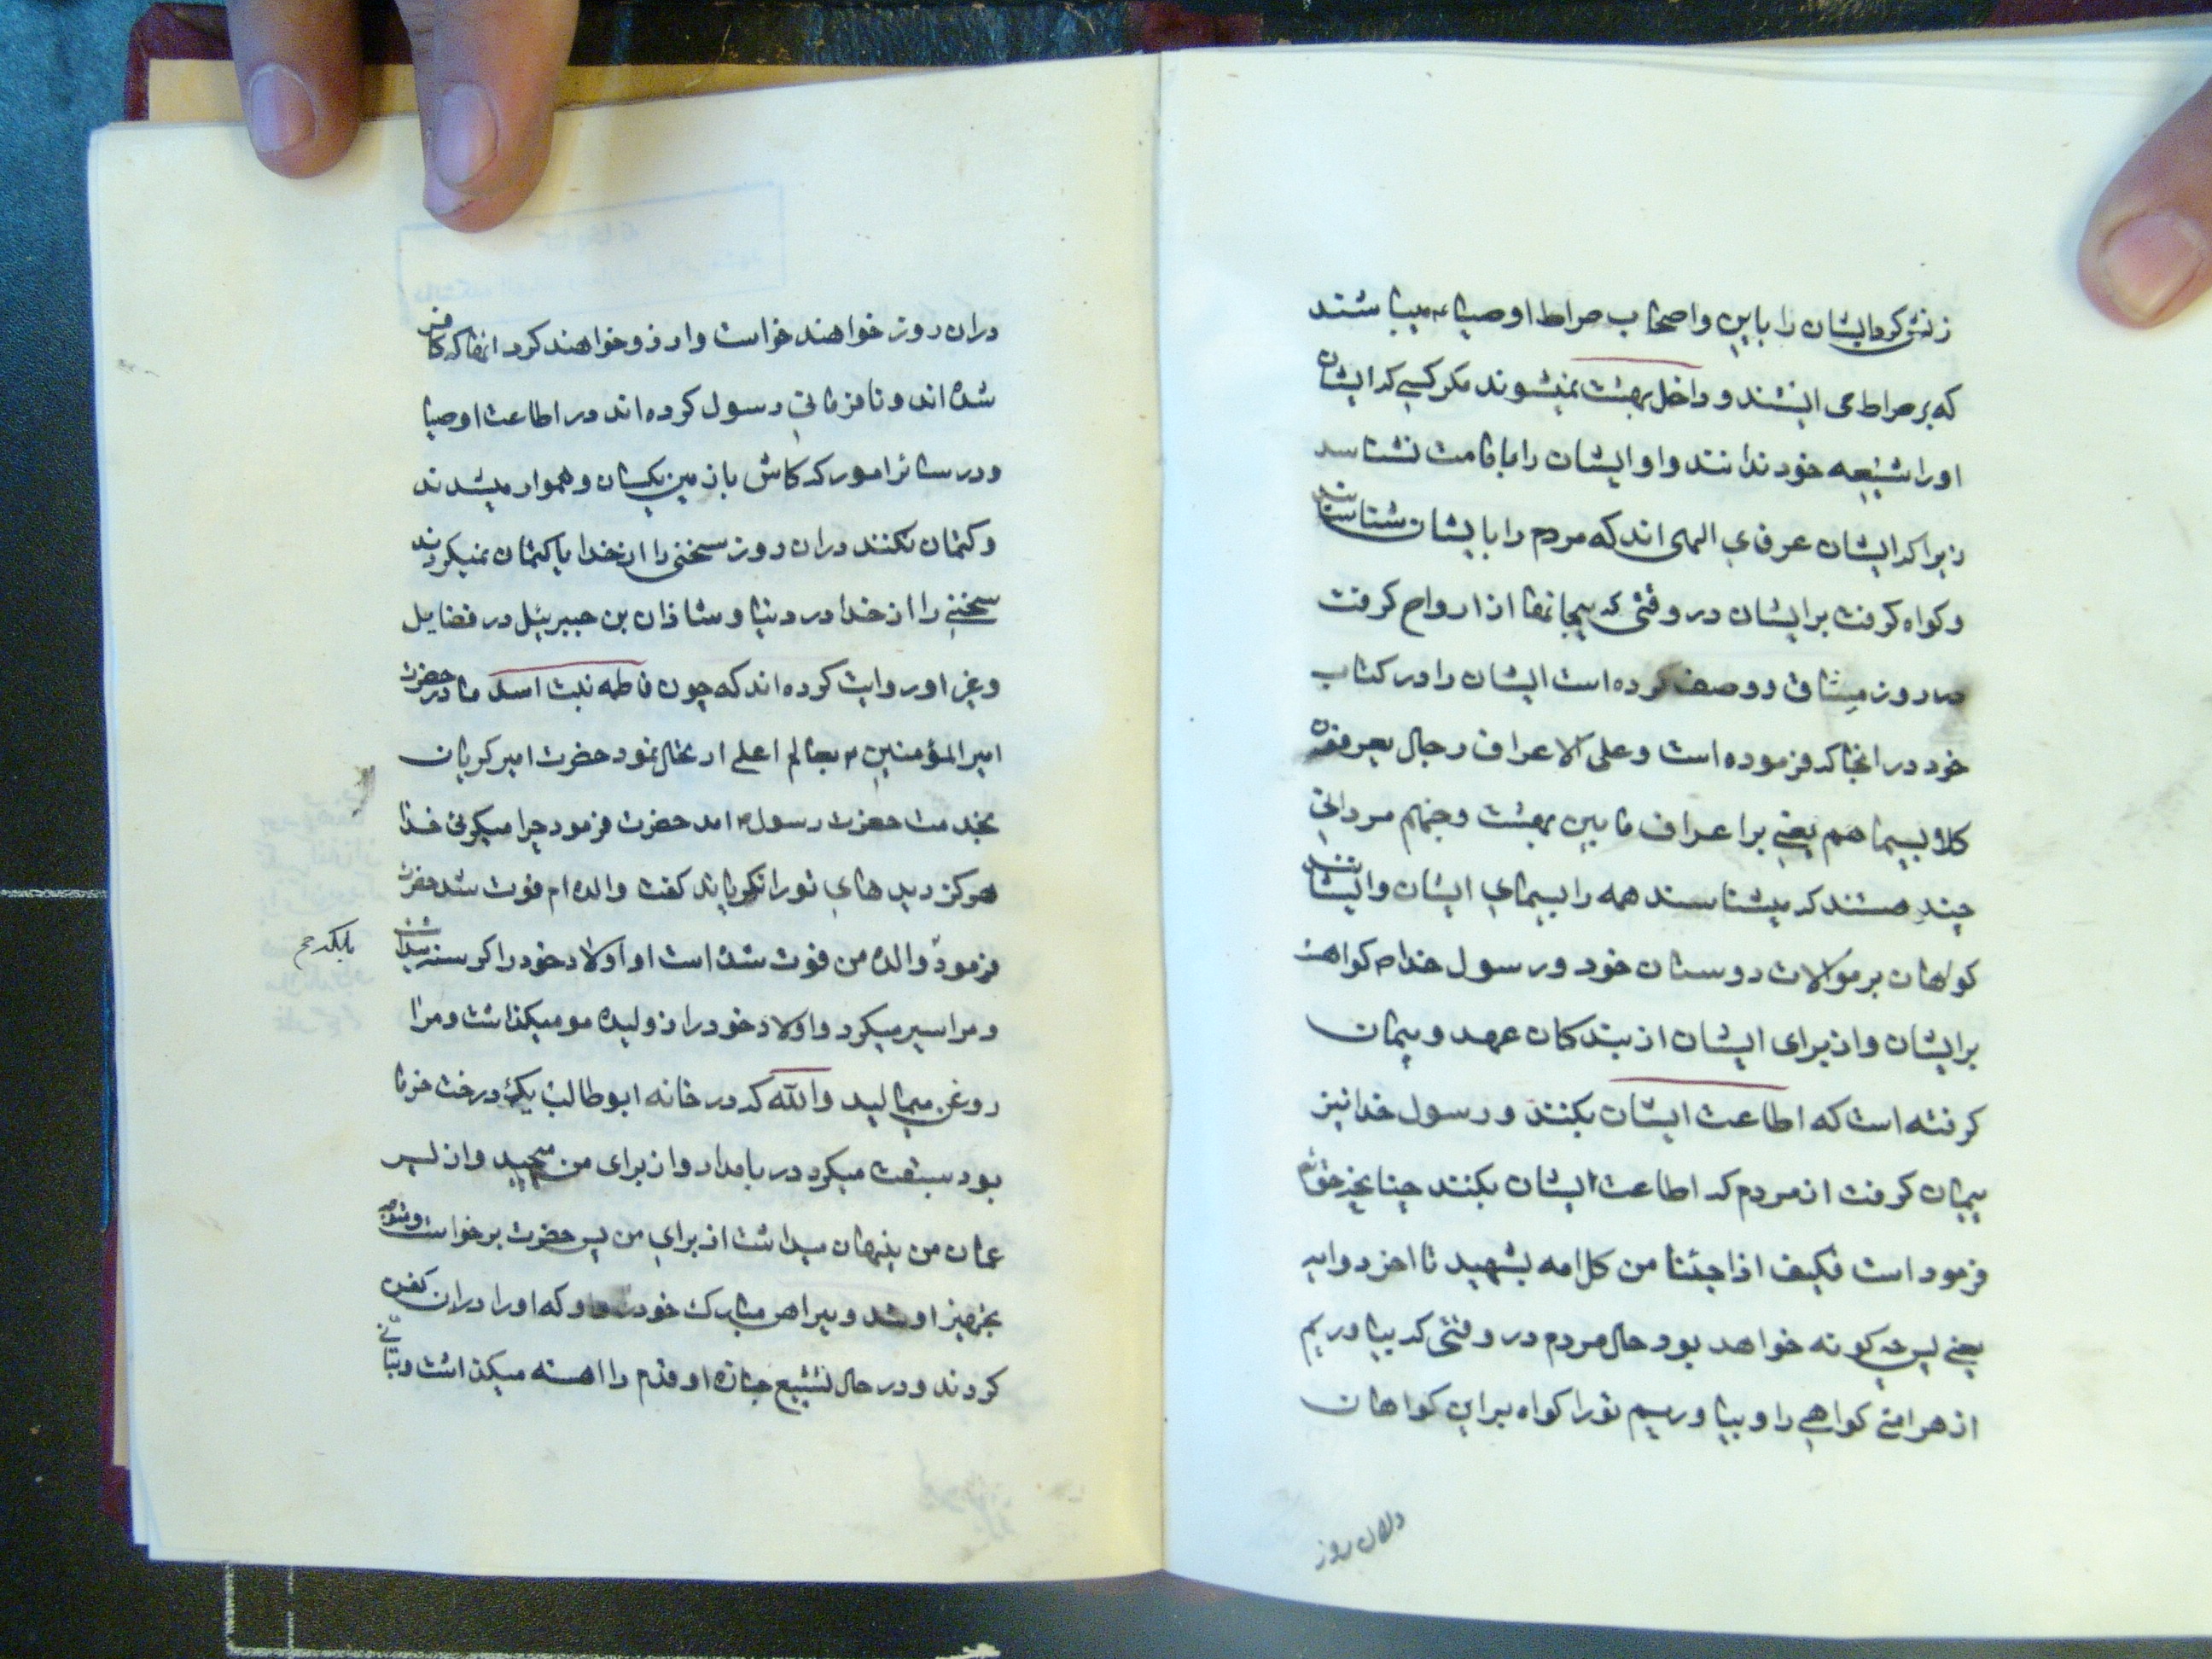 زنش کرد ایشان را باین و اصحاب صراط اوصیاء میباشند
که بر صراط می ایستند و داخل بهشت نمیشوند مکر کسی که ایشان
او را شیعه خود دانند و او ایشان را بامامت نشناسد
زیرا که ایشان عرفای الهی اند که مردم را بایشان شناساند
و کواه کرفت بر ایشان در وقتی که پیمانها از ارواح کرفت
در روز میثاق و وصف کرده است ایشان را در کتاب
خود در انجا که فرموده است و علی الاعراف رجال یعرفون
کلا بسیماهم یعنی بر اعراف مابین بهشت و جهنم مردانی
چند هستند که میشناسند همه را بسیمای ایشان و ایشانند
کواهان بر موالات دوستان خود و رسول خدا م کواهست
بر ایشان و از برای ایشان از بندکان عهد و پیمان
کرفته است که اطاعت ایشان بکنند و رسول خدا نیز
پیمان کرفت از مردم که اطاعت ایشان بکنند چنانچه حقتع
فرمود است فکیف اذا جئنا من کل امه بشهید تا اخر دو ایه
یعنی پس چه کونه خواهد بود حال مردم در وقتی که بیاوریم
از هر امتی کواهی را و بیاوریم تو را کواه بر این کواهان
در ان روز
در ان روز خواهند خواست و ارزو خواهند کرد انها که کافر
شده اند و نافرمانی رسول کرده اند در اطاعت اوصیا
و در سائر امور که کاش با زمین یکسان و هموار میشدند
و کتمان نکنند در ان روز سخنی را از خدا یا کتمان نمیکردند
سخنی را از خدا در دنیا و شاذان بن جبرئیل در فضایل
و غیر او روایت کرده اند که چون فاطمه بنت اسد مادر حضرت
امیر المؤمنین م بعالم اعلی ارتحال نمود حضرت امیر کریان
بخدمت حضرت رسول م امد حضرت فرمود چرا میکرئی خدا
هرکز دیدهای تو را نکریاند کفت والده ام فوت شد حضرت
فرمود والده من فوت شده است او اولاد خود را کرسنه میداشت
و مرا سیر میکرد و اولاد خود را ژولیده مو میکذاشت و مرا
روغن میمالید والله که در خانه ابوطالب یک درخت خرما
بود سبقت میکرد در بامداد و از برای من میچید و از پسر
عمان من پنهان میداشت از برای من پس حضرت برخواست و متوجه
تجهیز او شد و پیراهن مبارک خود داد که او را در ان کفن
کردند و در حال تشییع جنازه او قدم را اهسته میکذاشت و بتانی